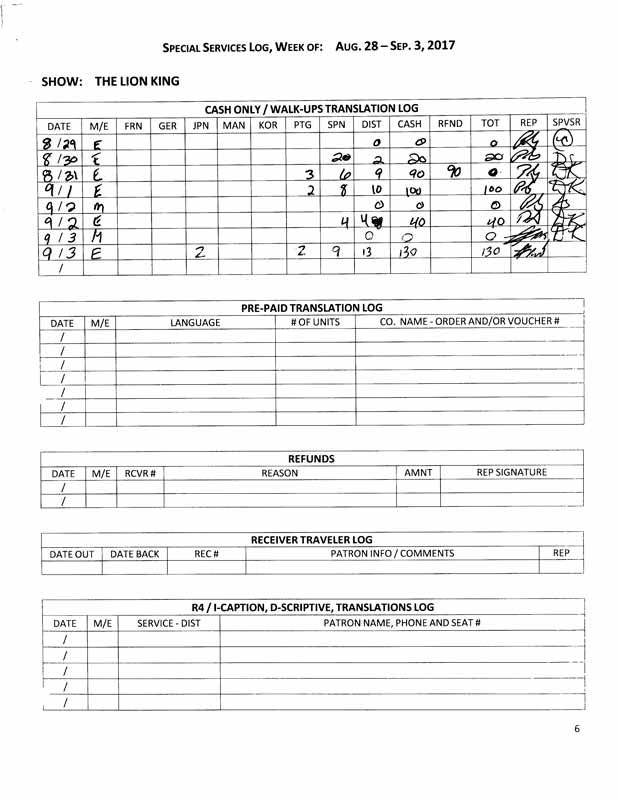 SPECIAL SERVICES LOG, WEEK OF: AUG. 28 – SEP. 3, 2017
SHOW: THE LION KING
CASH ONLY / WALK-UPS TRANSLATION LOG
DATE M/E FRN GER JPN MAN KOR PTG SPN DIST CASH RFND TOT REP SPVSR
8 / 29 E 0 0 0
8 / 30 E 20 2 20 20
8 / 31 E 3 6 9 90 90 0
9 / 1 E 2 8 10 100 100
9 / 2 M 0 0 0
9 / 2 E 4 4 40 40
9 / 3 M 0 0 0
9 / 3 E 2 2 9 13 130 130
/
PRE-PAID TRANSLATION LOG
DATE M/E LANGUAGE # OF UNITS CO. NAME - ORDER AND/OR VOUCHER #
/
/
/
/
/
/
/
REFUNDS
DATE M/E RCVR # REASON AMNT REP SIGNATURE
/
/
RECEIVER TRAVELER LOG
DATE OUT DATE BACK REC # PATRON INFO / COMMENTS REP
R4 / I-CAPTION, D-SCRIPTIVE, TRANSLATIONS LOG
DATE M/E SERVICE - DIST PATRON NAME, PHONE AND SEAT #
/
/
/
/
/
6